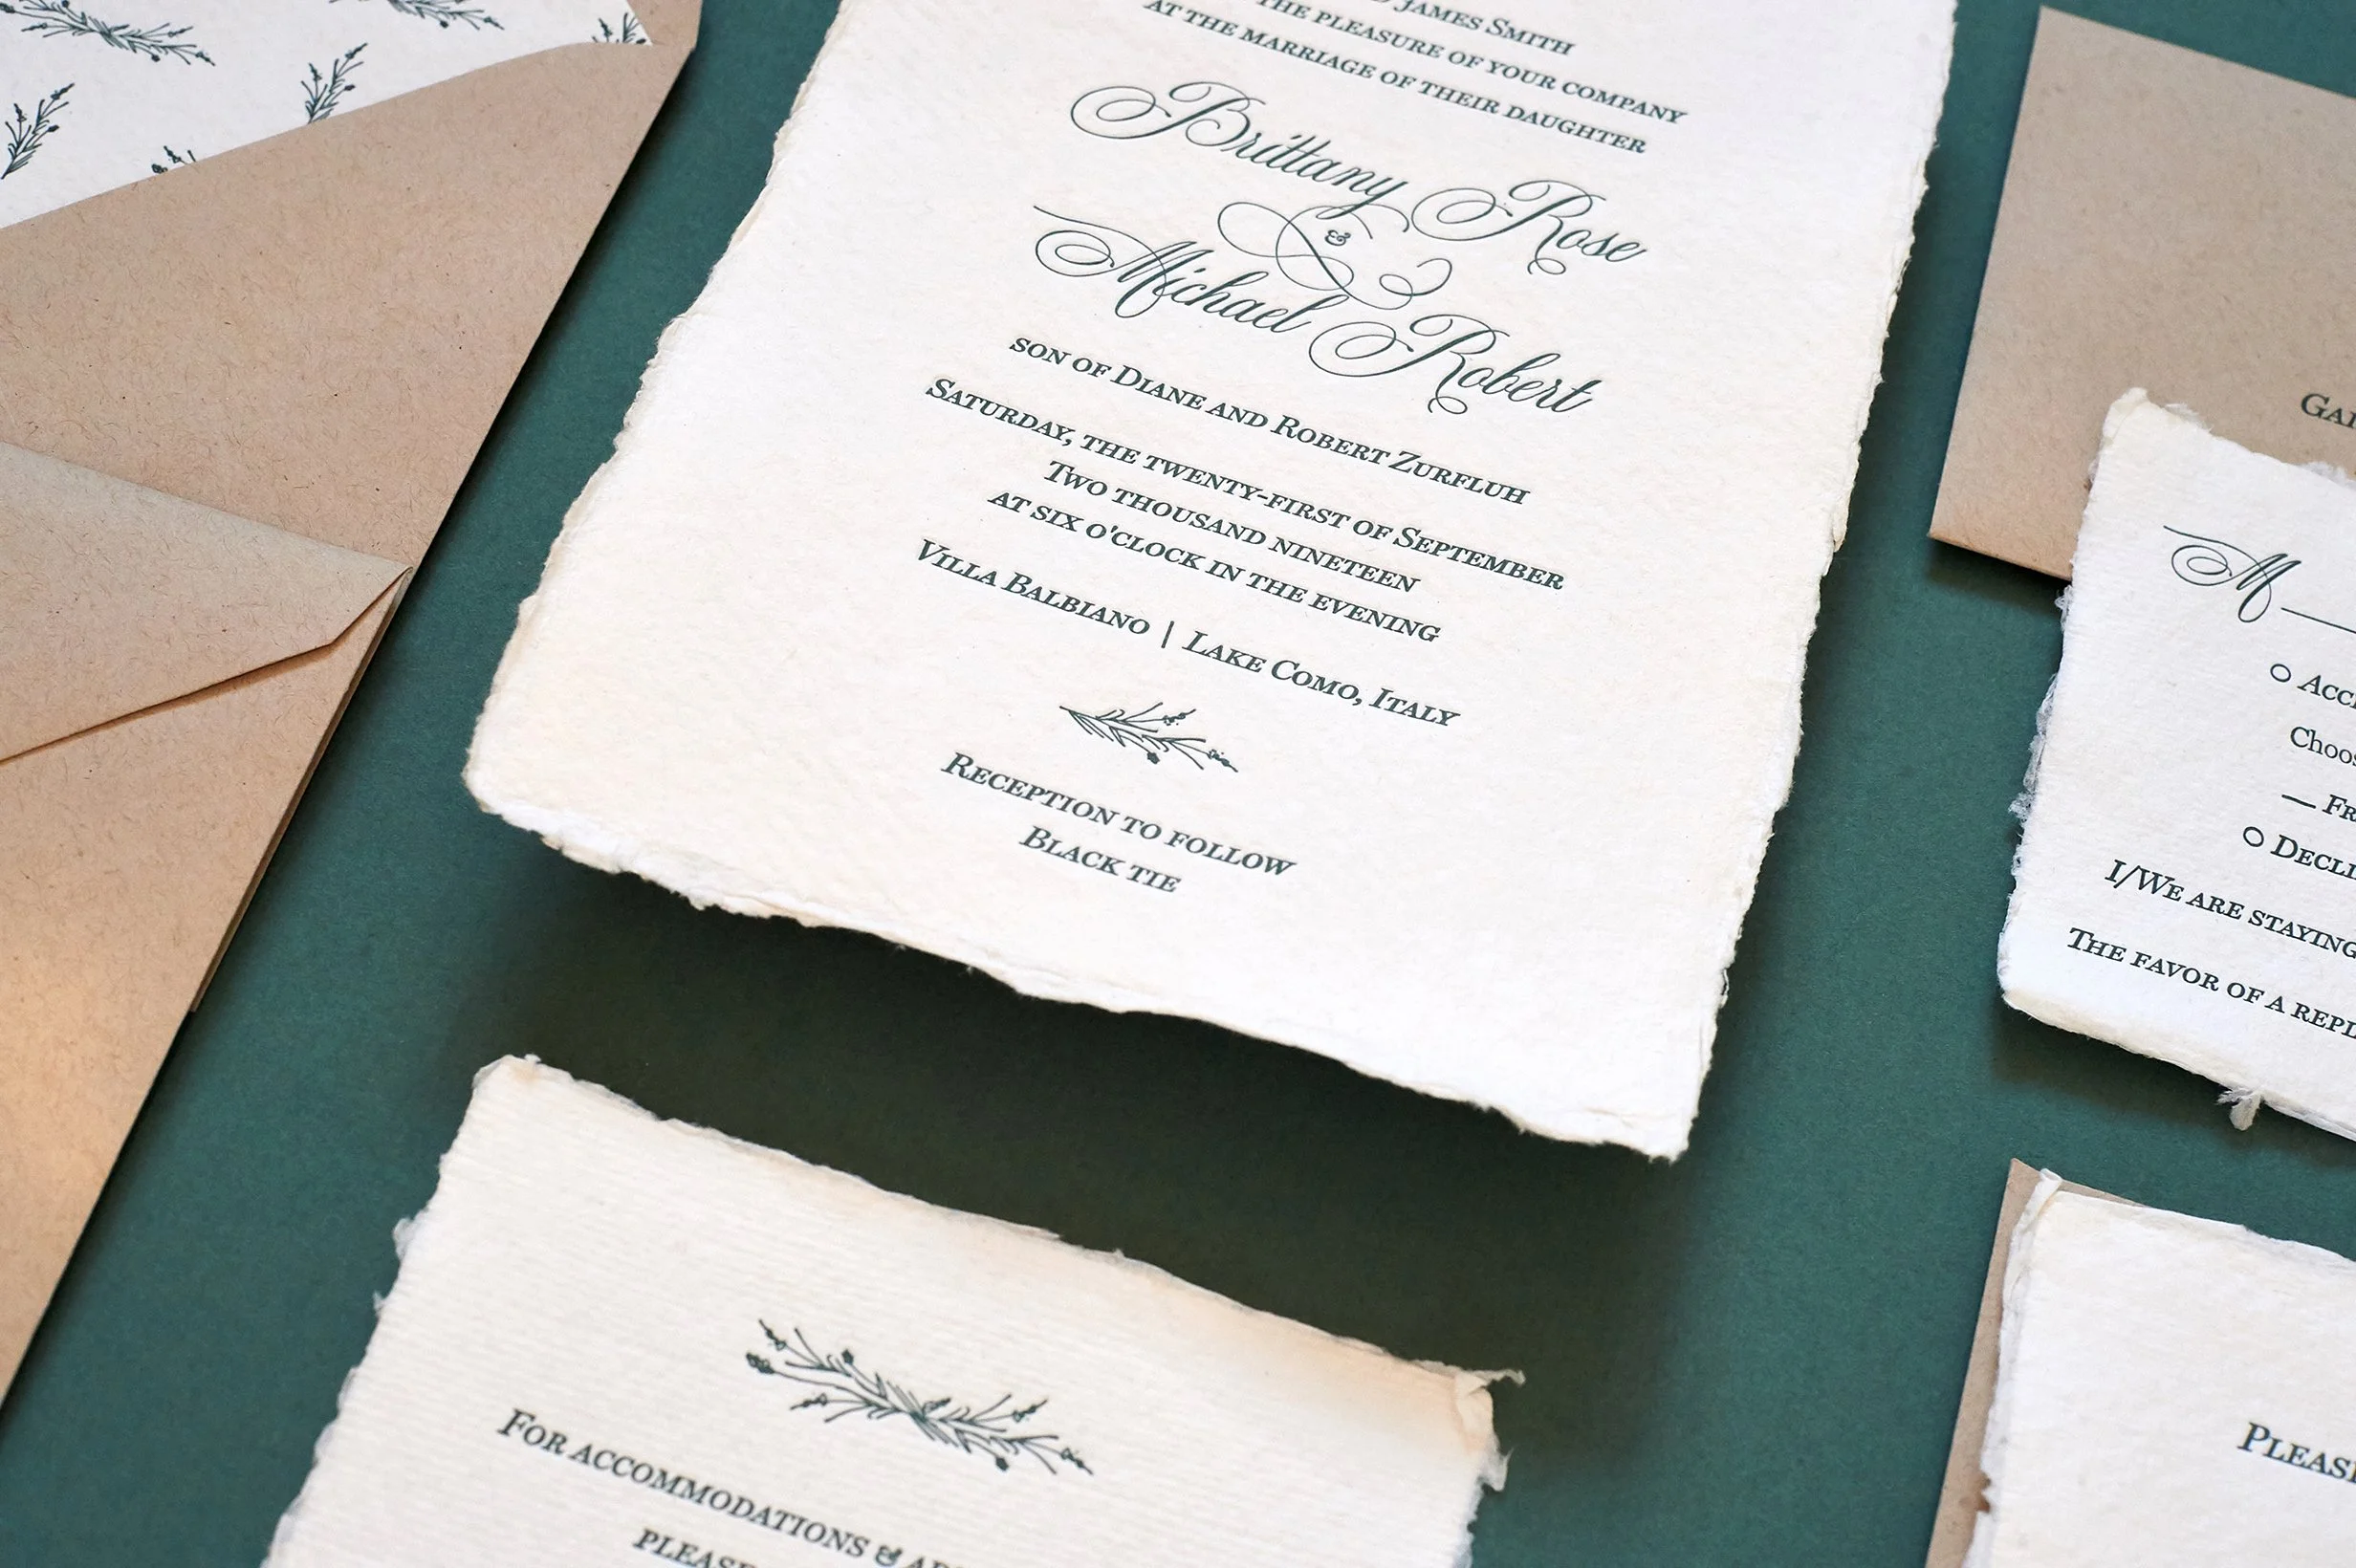 James Smith
the pleasure of your company
at the marriage of their daughter
Brittany Rose
&
Michael Robert
son of Diane and Robert Zurfluh
Saturday, the twenty-first of September
Two thousand nineteen
at six o'clock in the evening
Villa Balbiano | Lake Como, Italy
Reception to follow
Black tie
For accommodations &
please
M
Choos
I/We are staying
The favor of a repl
Please